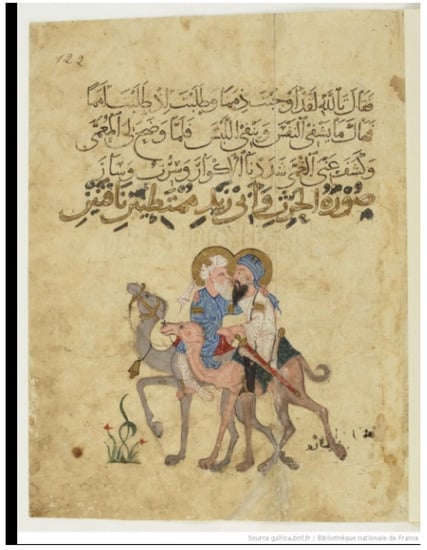 122
فقال تالله لقد اوجبت ذمما وطلبت اذ طلبت امما
فهاك ما يشفي النفس وينفي اللبس فلما وضح لي المعمى
وكشف عني الغمى شددنا الاكوار وسرت وسار
صورة الحرث وابي زيد ممتطيين ناقتين
Source gallica.bnf.fr / Bibliothèque nationale de France